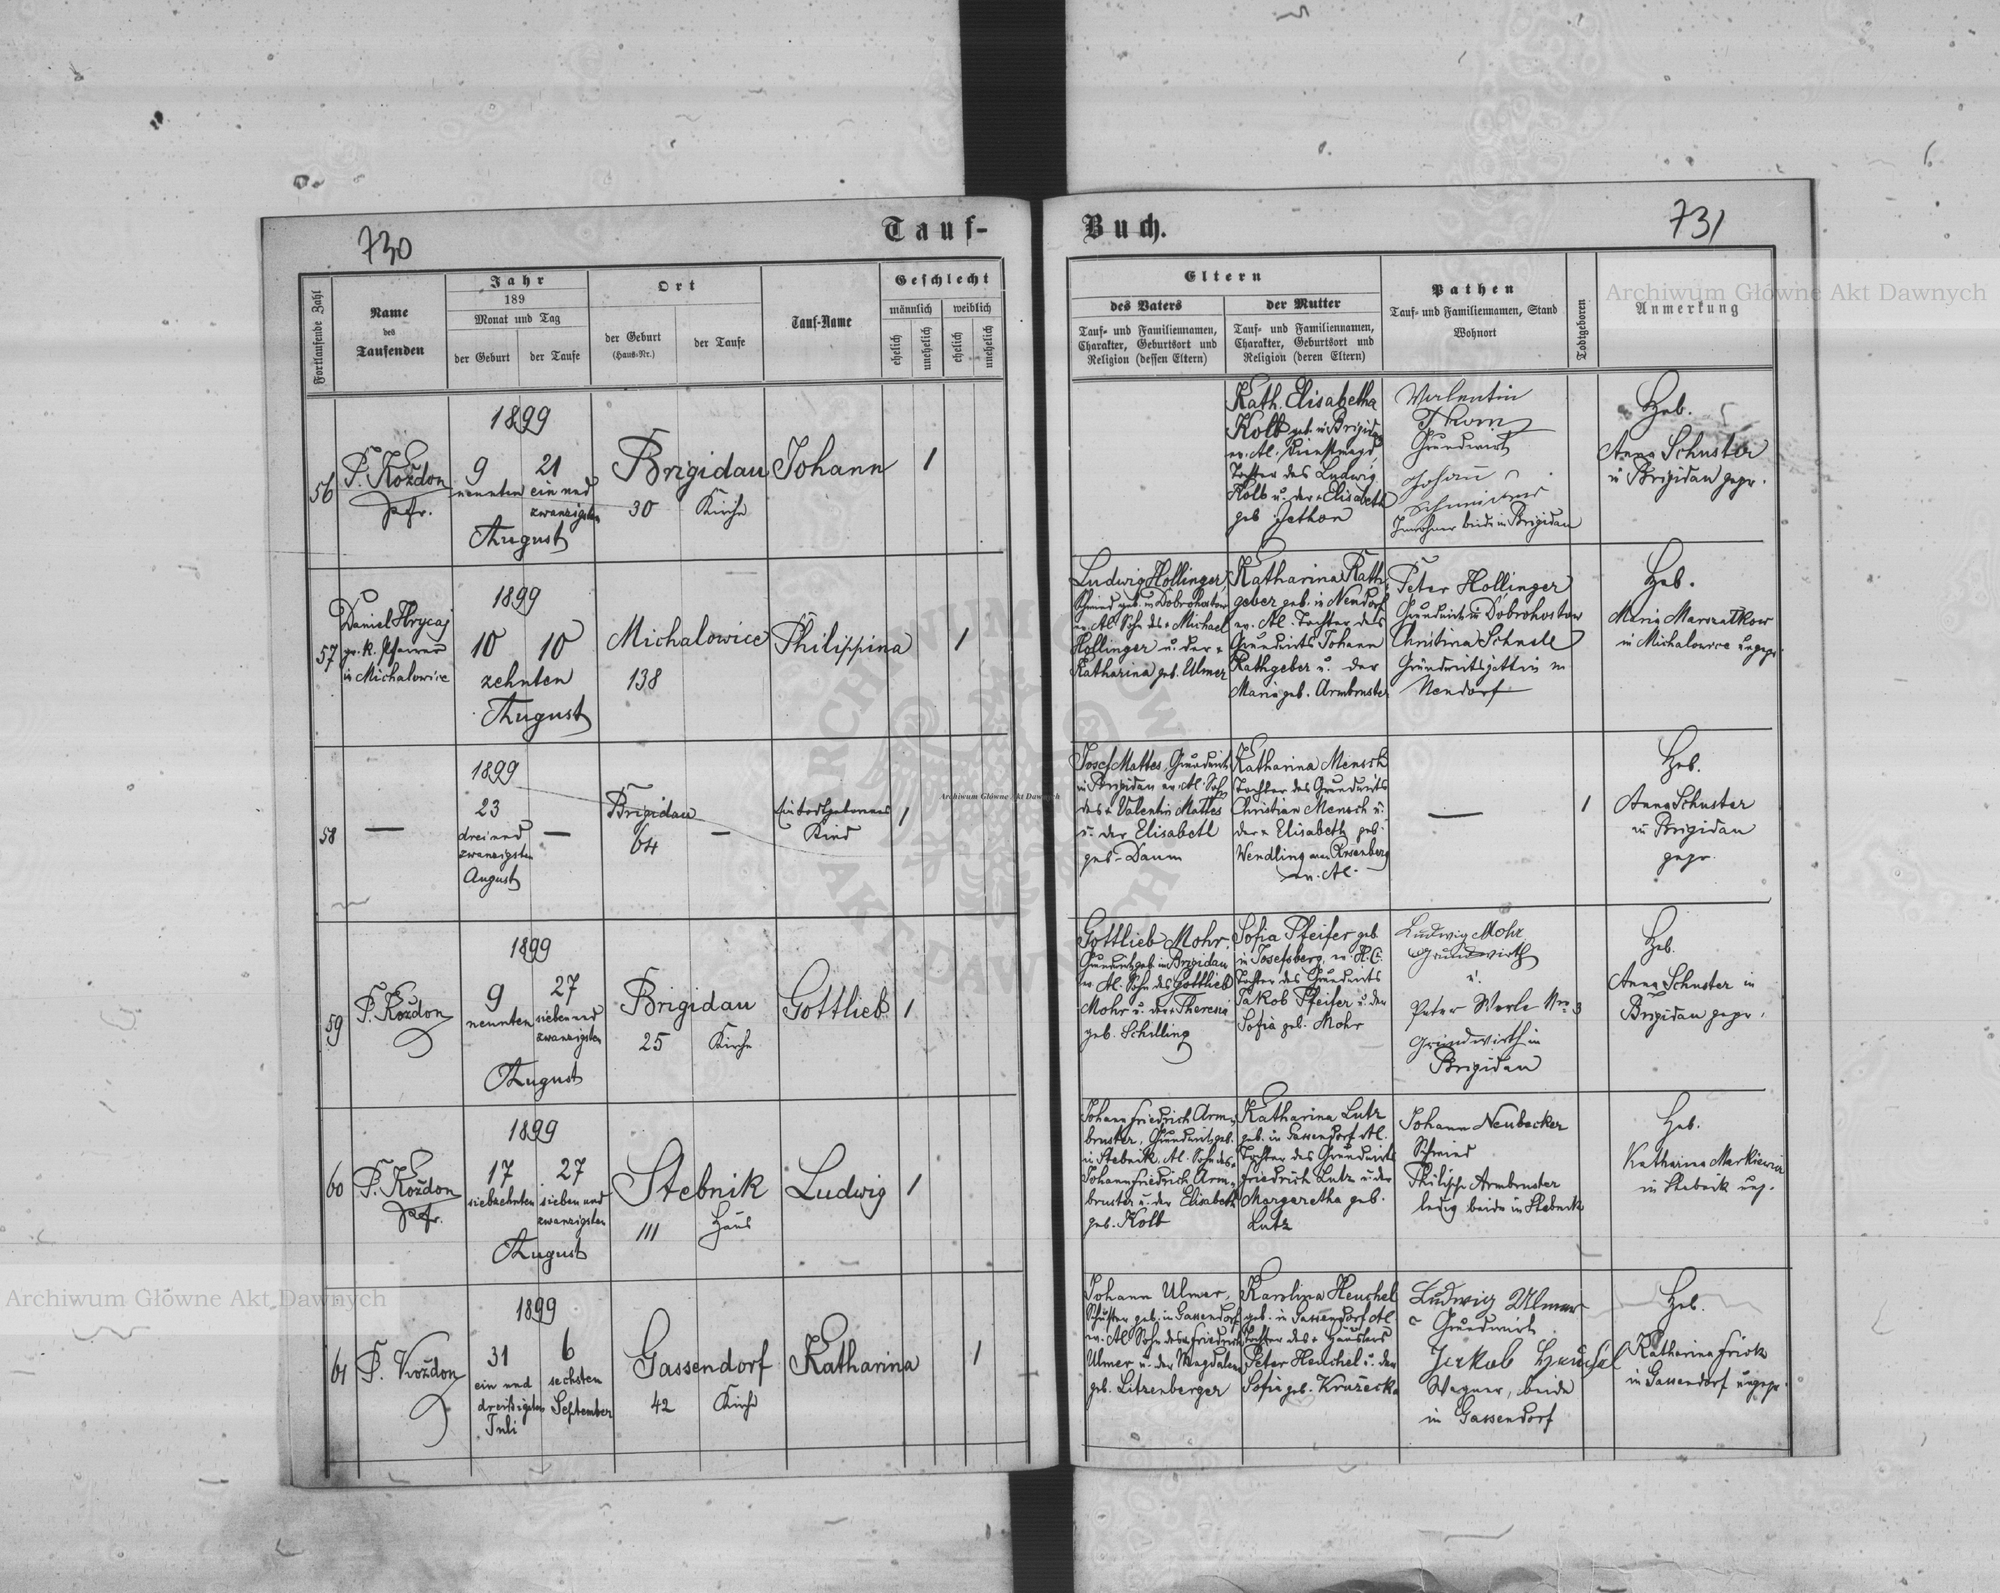 730
Tauf-
Buch.
731
Fortlaufende Zahl
Name
des
Taufenden
Jahr
189
Monat und Tag
der Geburt
der Taufe
Ort
der Geburt
(Haus-Nr.)
der Taufe
Tauf-Name
Geschlecht
männlich
weiblich
ehelich
unehelich
ehelich
unehelich
Eltern
des Vaters
Tauf- und Familiennamen,
Charakter, Geburtsort und
Religion (dessen Eltern)
der Mutter
Tauf- und Familiennamen,
Charakter, Geburtsort und
Religion (deren Eltern)
Pathen
Tauf- und Familiennamen, Stand
Wohnort
Todtgeboren
Anmerkung
Archiwum Główne Akt Dawnych
56
P. Koždon
Pfr.
1899
9
neunten
21
ein und
zwanzigsten
August
Brigidau
30
Kirche
Johann
1
Kath. Elisabetha
Kolb geb. in Brigidau
ev. Al. Dienstmagd,
Tochter des Ludwig
Kolb u. der + Elisabeth
geb. Jethon
Valentin
Thom
Grundwirt
Johann
Inwohner beide in Brigidau
Heb.
Anna Schuster
in Brigidau gepr.
57
Daniel Hrycaj
gr. k. Pfarrer
in Michalowice
1899
10
10
zehnten
August
Michalowice
138
Philippina
1
Ludwig Hollinger
Schmied geb. in Dobrohostow
ev. Al. Sohn des + Michael
Hollinger u. der +
Katharina geb. Ulmer
Katharina Rath-
geber geb. in Neudorf
ev. Al. Tochter des
Grundwirts Johann
Rathgeber u. der
Maria geb. Armbruster
Peter Hollinger
Grundwirt in Dobrohostow
Christina Schnell
Grundwirtsgattin in
Neudorf
Heb.
Maria Marszalkow
in Michalowice ungepr.
58
—
1899
23
drei und
zwanzigsten
August
—
Brigidau
64
—
Ein todtgeborenes
Kind
1
Josef Mattes, Grundwirt
in Brigidau ev. Al. Sohn
des + Valentin Mattes
u. der Elisabeth
geb. Daum
Katharina Mensch
Tochter des Grundwirts
Christian Mensch u.
der + Elisabeth geb.
Wendling aus Ugartsberg
ev. Al.
—
1
Heb.
Anna Schuster
in Brigidau
gepr.
Archiwum Główne Akt Dawnych
59
P. Koždon
1899
9
neunten
27
sieben und
zwanzigsten
August
Brigidau
25
Kirche
Gottlieb
1
Gottlieb Mohr,
Grundwirt geb. in Brigidau
ev. Al. Sohn des Gottlieb
Mohr u. der + Theresia
geb. Schilling
Sofia Pfeifer geb.
in Josefsberg, ev. H. C.
Tochter des Grundwirts
Jakob Pfeifer u. der
Sofia geb. Mohr
Ludwig Mohr
Grundwirth
u.
Peter Werle Nro 3
Grundwirth in
Brigidau
Heb.
Anna Schuster in
Brigidau gepr.
60
P. Koždon
Pfr.
1899
17
siebzehnten
27
sieben und
zwanzigsten
August
Stebnik
111
Haus
Ludwig
1
Johann Friedrich Arm-
bruster, Grundwirt geb.
in Stebnik, Al. Sohn des +
Johann Friedrich Arm-
bruster u. der Elisabeth
geb. Kolb
Katharina Lutz
geb. in Gassendorf Al.
Tochter des Grundwirts
Friedrich Lutz u. der
Margaretha geb.
Lutz
Johann Neubecker
Schmied
Philipp Armbruster
ledig beide in Stebnik
Heb.
Katharina Markiewicz
in Stebnik ung.
61
P. Koždon
1899
31
ein und
dreißigsten
Juli
6
sechsten
September
Gassendorf
42
Kirche
Katharina
1
Johann Ulmer,
Schuster geb. in Gassendorf
ev. Al. Sohn des + Friedrich
Ulmer u. der Magdalena
geb. Litzenberger
Karolina Heuchel
geb. in Gassendorf Al.
Tochter des + Häuslers
Peter Heuchel u. der
Sofia geb. Kruzecka
Ludwig Ulmer
Grundwirt
Jakob Heuchel
Wagner, beide
in Gassendorf
Heb.
Katharina Frick
in Gassendorf ungepr.
Archiwum Główne Akt Dawnych